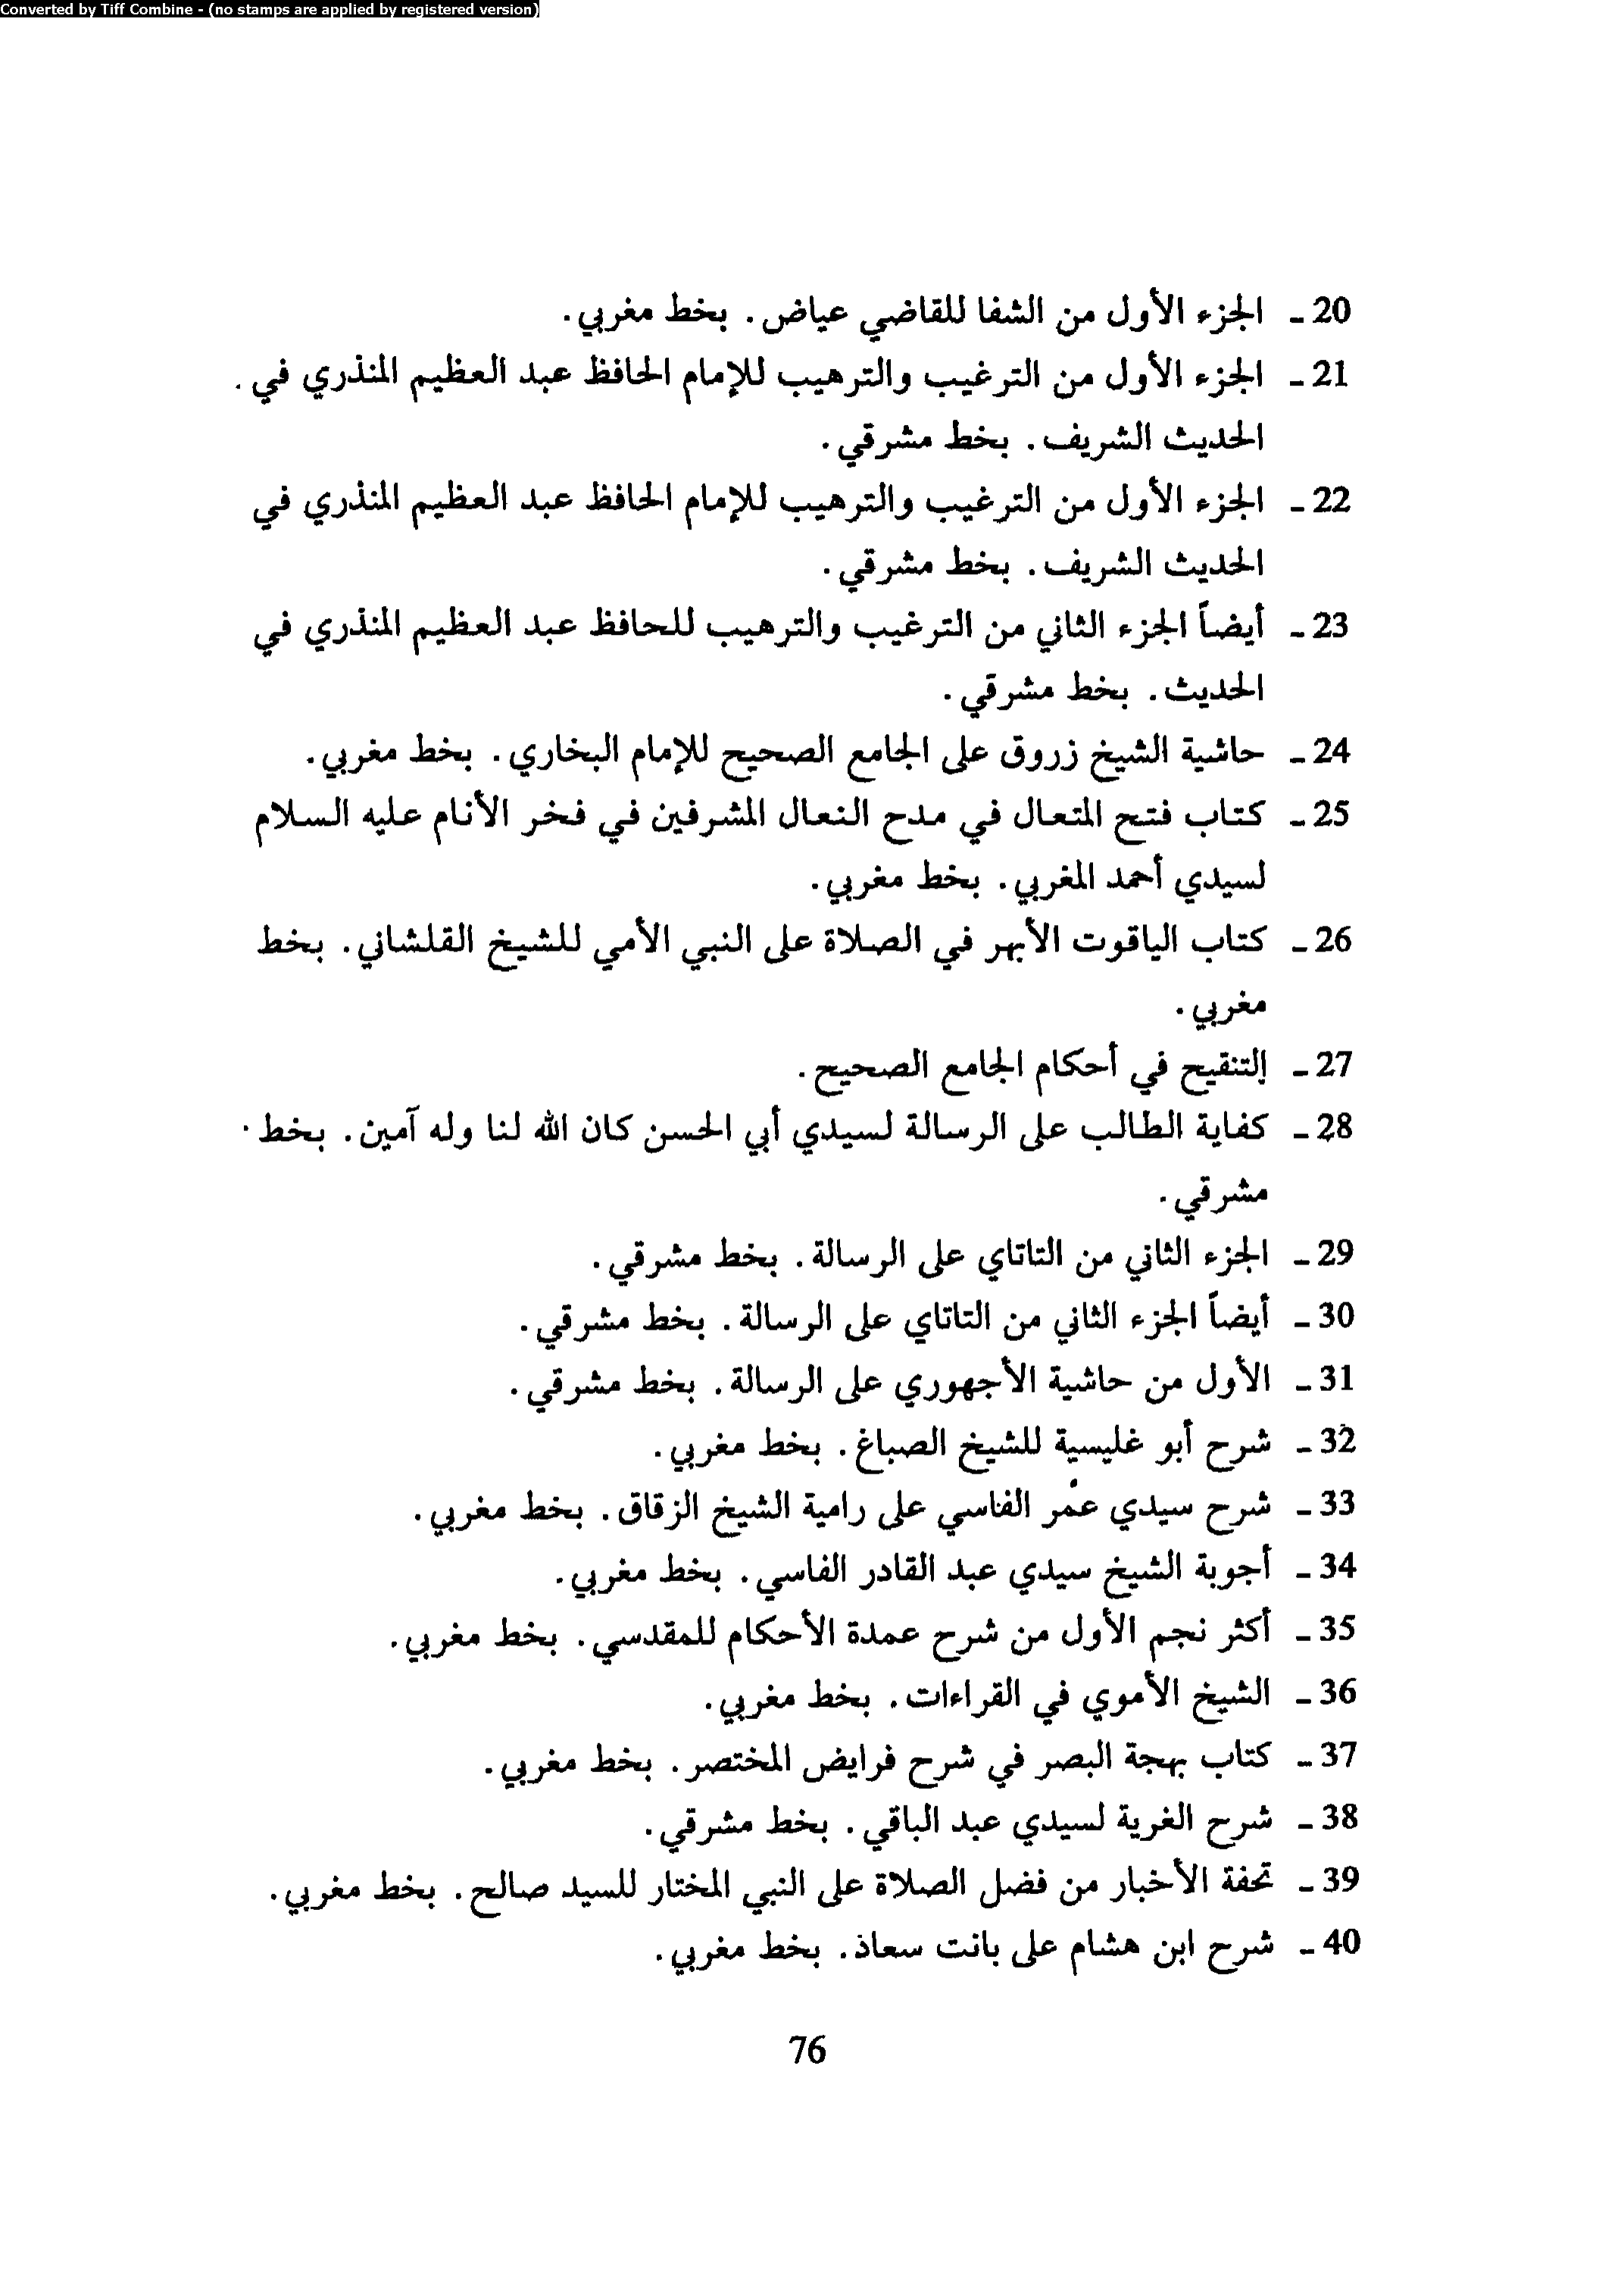 Converted by Tiff Combine - (no stamps are applied by registered version)
20 ـ الجزء الأول من الشفا للقاضي عياض. بخط مغربي.
21 ـ الجزء الأول من الترغيب والترهيب للإمام الحافظ عبد العظيم المنذري في .
الحديث الشريف. بخط مشرقي.
22 ـ الجزء الأول من الترغيب والترهيب للإمام الحافظ عبد العظيم المنذري في
الحديث الشريف. بخط مشرقي.
23 ـ أيضاً الجزء الثاني من الترغيب والترهيب للحافظ عبد العظيم المنذري في
الحديث. بخط مشرقي.
24 ـ حاشية الشيخ زروق على الجامع الصحيح للإمام البخاري. بخط مغربي.
25 ـ كتاب فتح المتعال في مدح النعال المشرفين في فخر الأنام عليه السلام
لسيدي أحمد المغربي. بخط مغربي.
26 ـ كتاب الياقوت الأبهر في الصلاة على النبي الأمي للشيخ القلشاني. بخط
مغربي.
27 ـ إلتنقيح في أحكام الجامع الصحيح.
28 ـ كفاية الطالب على الرسالة لسيدي أبي الحسن كان الله لنا وله آمين. بخط
مشرقي.
29 ـ الجزء الثاني من التاتاي على الرسالة. بخط مشرقي.
30 ـ أيضاً الجزء الثاني من التاتاي على الرسالة. بخط مشرقي.
31 ـ الأول من حاشية الأجهوري على الرسالة. بخط مشرقي.
32 ـ شرح أبو غليسية للشيخ الصباغ. بخط مغربي.
33 ـ شرح سيدي عمُر الفاسي على رامية الشيخ الزقاق. بخط مغربي.
34 ـ أجوبة الشيخ سيدي عبد القادر الفاسي. بخط مغربي.
35 ـ أكثر نجم الأول من شرح عمدة الأحكام للمقدسي. بخط مغربي.
36 ـ الشيخ الأموي في القراءات. بخط مغربي.
37 ـ كتاب بهجة البصر في شرح فرايض المختصر. بخط مغربي.
38 ـ شرح الغرية لسيدي عبد الباقي. بخط مشرقي.
39 ـ تحفة الأخبار من فضل الصلاة على النبي المختار للسيد صالح. بخط مغربي.
40 ـ شرح ابن هشام على بانت سعاذ. بخط مغربي.
76